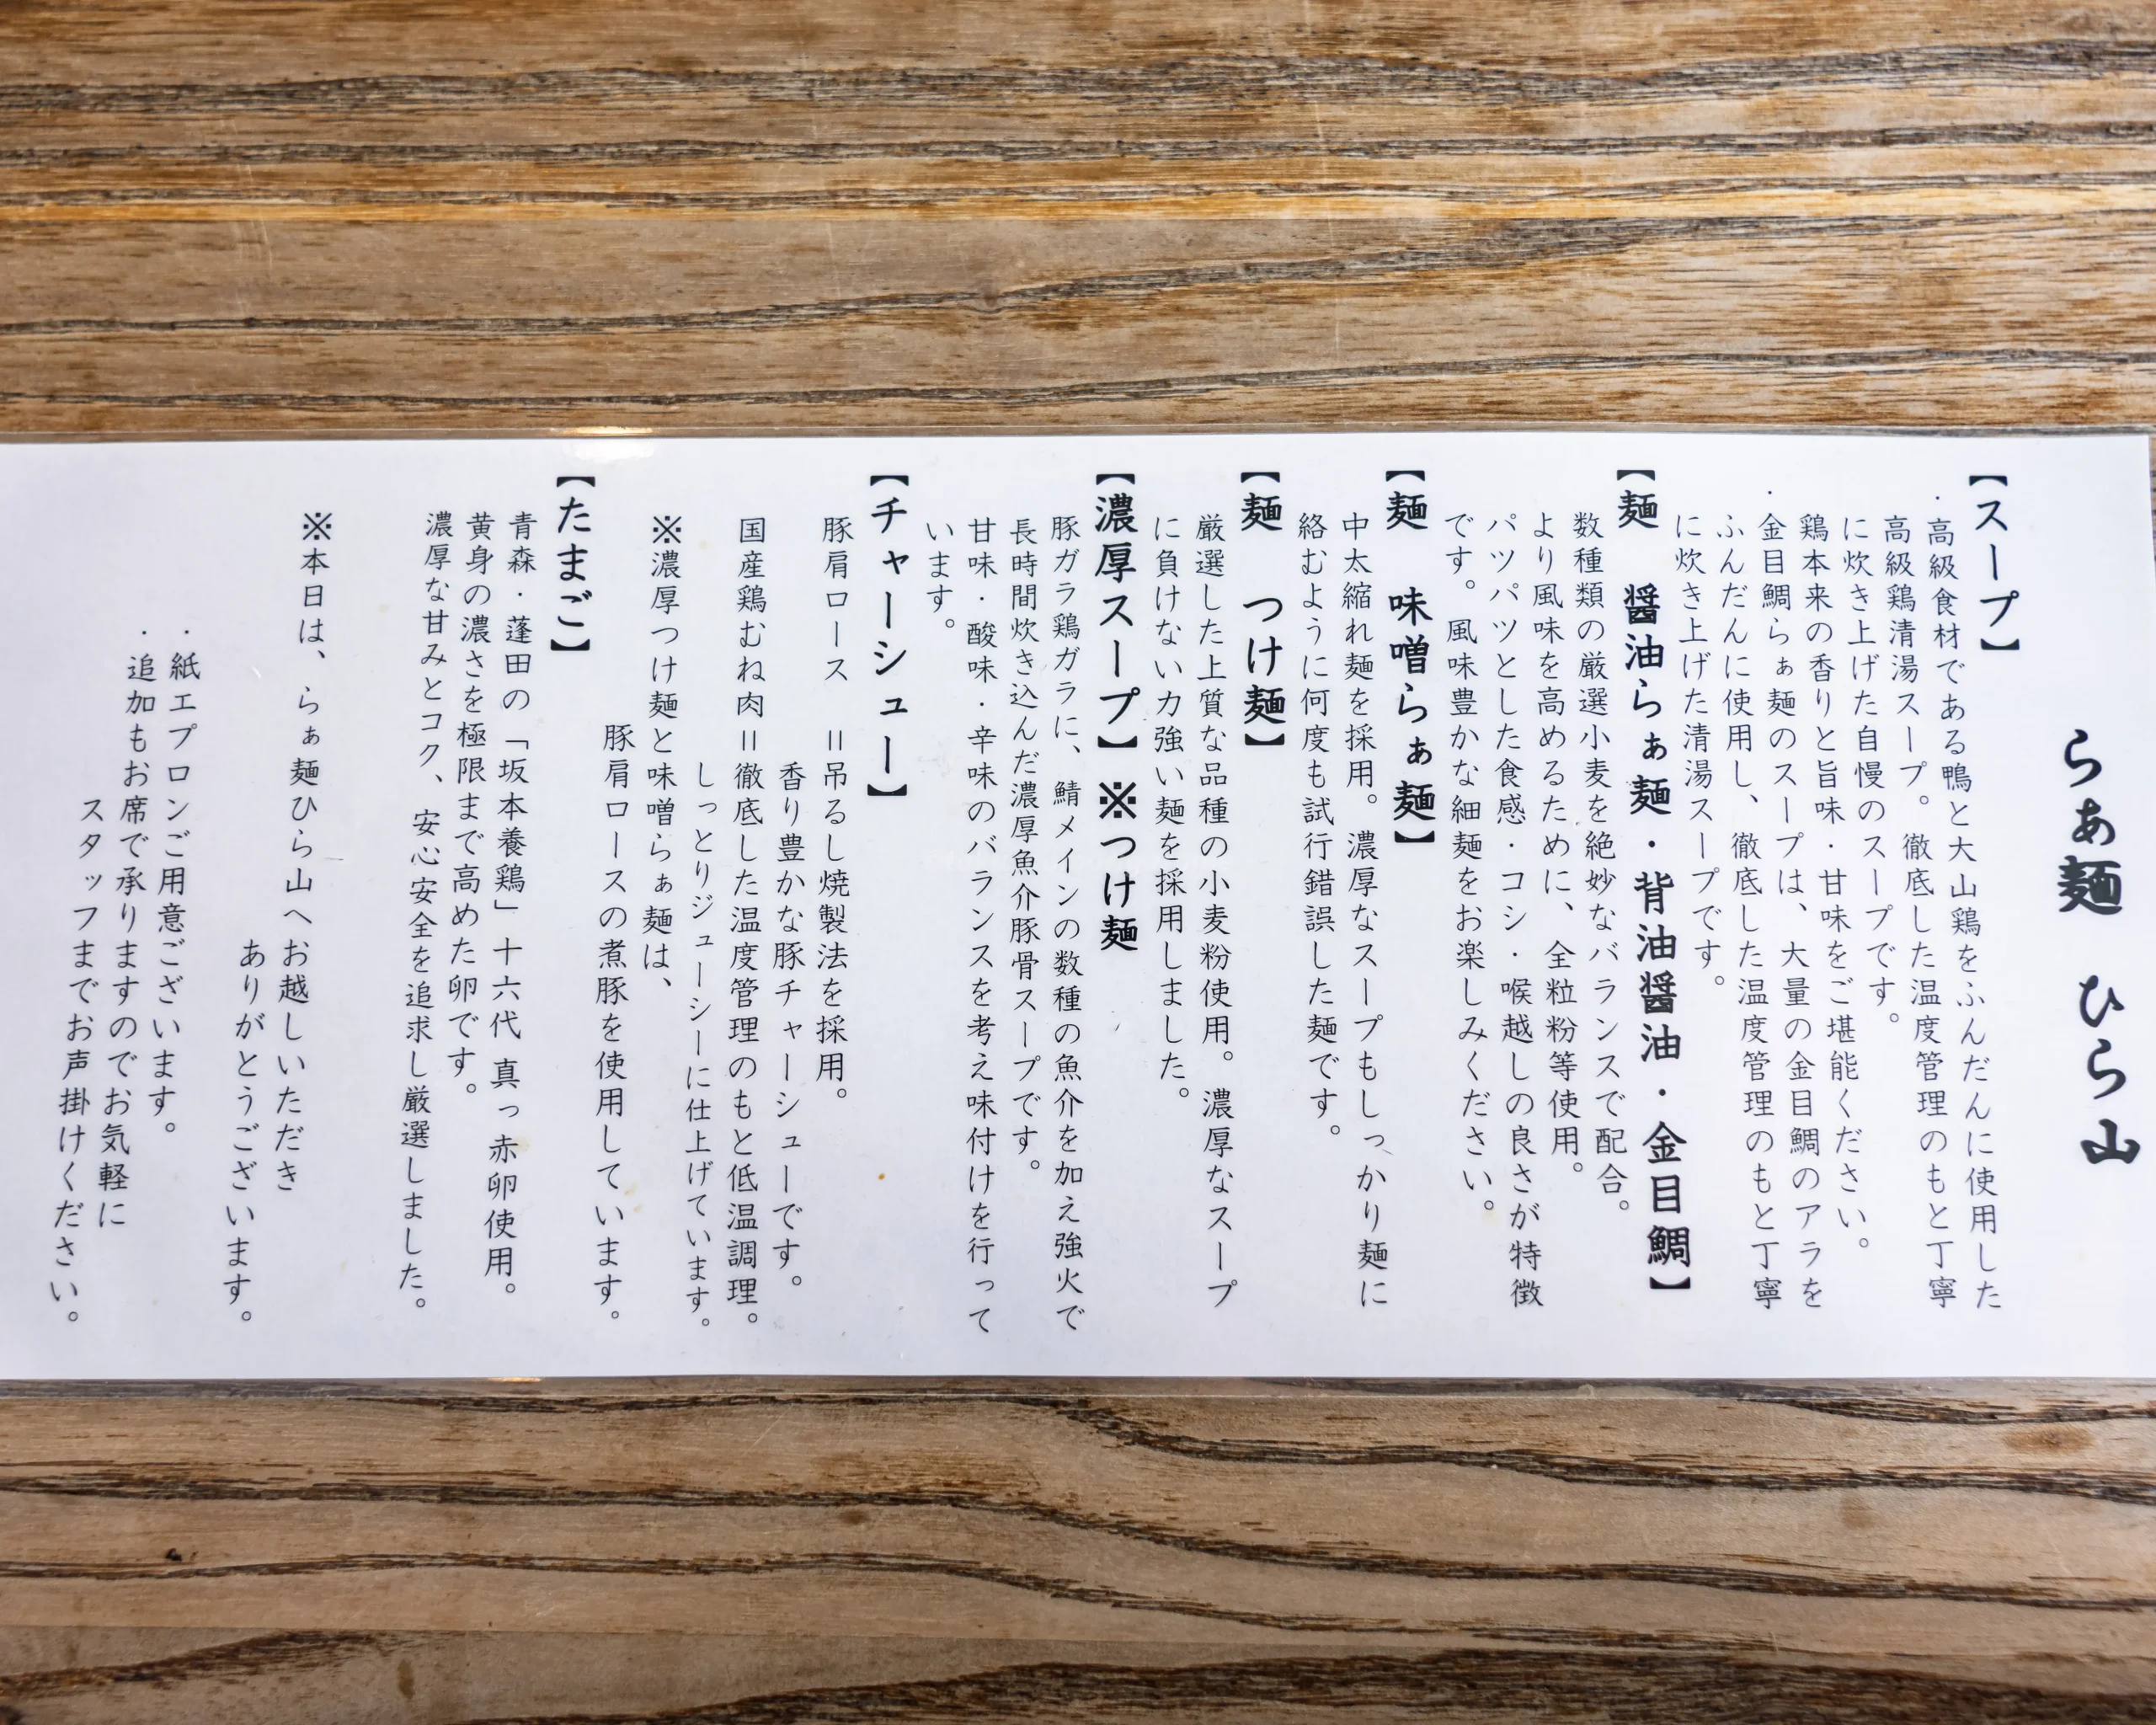 らぁ麺　ひら山
【スープ】
・高級食材である鴨と大山鶏をふんだんに使用した
高級鶏清湯スープ。徹底した温度管理のもと丁寧
に炊き上げた自慢のスープです。
鶏本来の香りと旨味・甘味をご堪能ください。
・金目鯛らぁ麺のスープは、大量の金目鯛のアラを
ふんだんに使用し、徹底した温度管理のもと丁寧
に炊き上げた清湯スープです。
【麺　醤油らぁ麺・背油醤油・金目鯛】
数種類の厳選小麦を絶妙なバランスで配合。
より風味を高めるために、全粒粉等使用。
パツパツとした食感・コシ・喉越しの良さが特徴
です。風味豊かな細麺をお楽しみください。
【麺　味噌らぁ麺】
中太縮れ麺を採用。濃厚なスープもしっかり麺に
絡むように何度も試行錯誤した麺です。
【麺　つけ麺】
厳選した上質な品種の小麦粉使用。濃厚なスープ
に負けない力強い麺を採用しました。
【濃厚スープ】※つけ麺
豚ガラ鶏ガラに、鯖メインの数種の魚介を加え強火で
長時間炊き込んだ濃厚魚介豚骨スープです。
甘味・酸味・辛味のバランスを考え味付けを行って
います。
【チャーシュー】
豚肩ロース　＝吊るし焼製法を採用。
香り豊かな豚チャーシューです。
国産鶏むね肉＝徹底した温度管理のもと低温調理。
しっとりジューシーに仕上げています。
※濃厚つけ麺と味噌らぁ麺は、
豚肩ロースの煮豚を使用しています。
【たまご】
青森・蓬田の「坂本養鶏」十六代 真っ赤卵使用。
黄身の濃さを極限まで高めた卵です。
濃厚な甘みとコク、安心安全を追求し厳選しました。
※本日は、らぁ麺ひら山へお越しいただき
ありがとうございます。
・紙エプロンご用意ございます。
・追加もお席で承りますのでお気軽に
スタッフまでお声掛けください。